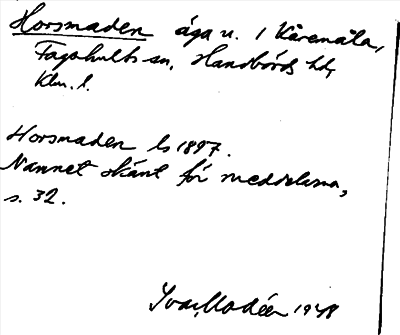 Horsmaden äga u. / Kåremåla,
Fagerhults sn, Handbörds hd,
Klm. l.
Horsmaden ls 1897.
Namnet okänt för meddelarna,
s. 32.
Ivar Modéer 1948